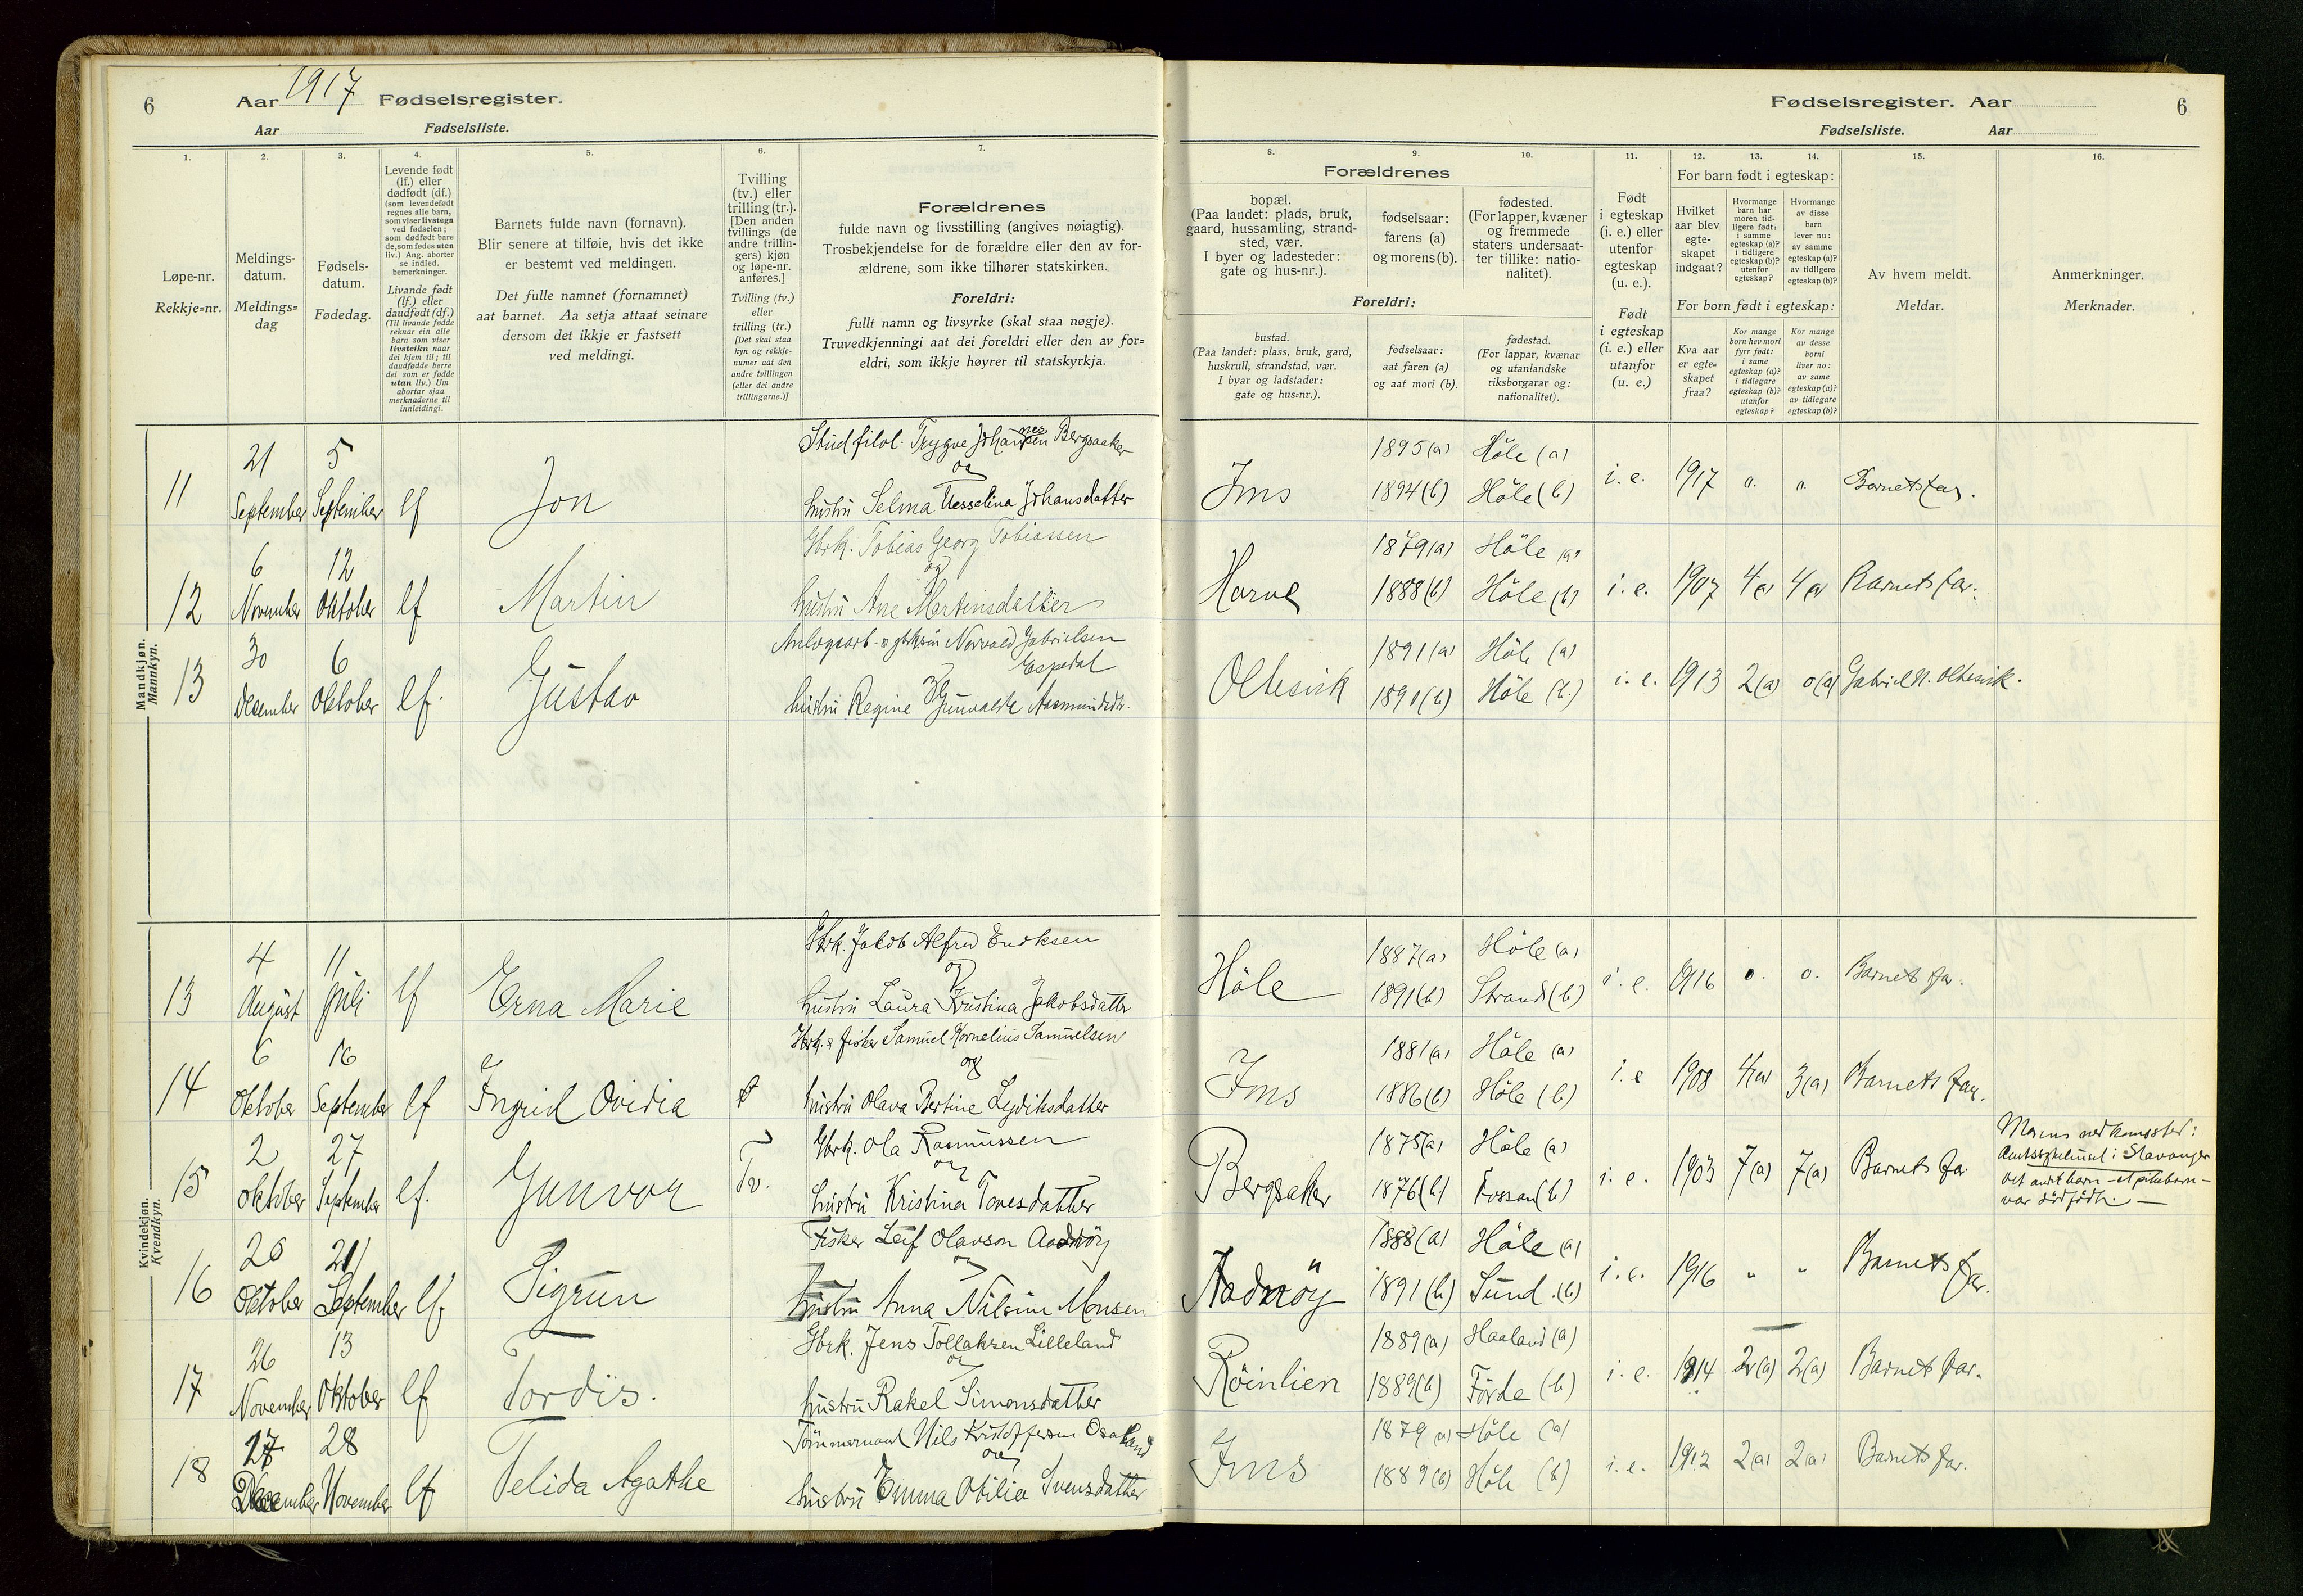 6 Aar 1917 Fødselsregister.
Aar Fødselsliste.
1. 2. 3. 4. 5. 6. 7.
Løpe-nr.
Rekkje=nr.
Meldings-
datum.
Meldings=
dag
Fødsels-
datum.
Fødedag.
Levende født
(lf.) eller
dødfødt (df.)
(som levendefødt
regnes alle barn,
som viser livstegn
ved fødselen;
som dødfødt bare
de, som fødes uten
liv.) Ang. aborter
se indled.
bemerkninger.
Livande født
(lf.) eller
daudfødt (df.)
(Til livande fødde
reknar ein alle
barn som viser
livsteikn naar
dei kjem til; til
daudfødde berre
dei som er fødde
utan liv.) Um
abortar sjaa
merknaderne til
innleidingi.
Barnets fulde navn (fornavn).
Blir senere at tilføie, hvis det ikke
er bestemt ved meldingen.
Det fulle namnet (fornamnet)
aat barnet. Aa setja attaat seinare
dersom det ikkje er fastsett
ved meldingi.
Tvilling
(tv.) eller
trilling (tr.).
[Den anden
tvillings (de
andre trillin-
gers) kjøn
og løpe-nr.
anføres.]
Tvilling (tv.)
eller
trilling (tr.)
[Det skal staa
kyn og rekkje-
numer aat den
andre tvillingen
(eller dei andre
trillingarne.)]
Forældrenes
fulde navn og livsstilling (angives nøiagtig).
Trosbekjendelse for de forældre eller den av for-
ældrene, som ikke tilhører statskirken.
Foreldri:
fullt namn og livsyrke (skal staa nøgje).
Truvedkjenningi aat dei foreldri eller den av for=
eldri, som ikkje høyrer til statskyrkja.
Mandkjøn.
Mannkyn.
11 21 September 5 September lf Jon
Stud filol. Trygve Johannesen Bergsaker
og
hustru Selma Tesselina Johansdatter
12 6 November 12 Oktober lf Martin
Gbrk. Tobias Georg Tobiassen
og
hustru Ane Martinsdatter
13 30 Desember 6 Oktober lf. Gustav
Anlægsarb. Norvald Gabrielsen
Espedal
og
hustru Regine Gunvalde Aasmundsdtr.
Kvindekjøn.
Kvendkyn.
13 4 August 11 Juli lf Erna Marie
Gbrk. Jakob Alfred Eriksen
og
hustru Laura Kristina Jakobsdatter
14 6 Oktober 16 September lf Ingrid Ovidia
Gbrk. & fisker Samuel Kornelius Samuelsen
og
hustru Olava Bertine Lydiksdatter
15 2 Oktober 27 September lf. Gunvor Tv.
Gbrk. Ola Rasmussen
og
hustru Kristina Tonesdatter
16 20 Oktober 21 September lf Sigrun
Fisker Leif Olavson Aadnöy
og
hustru Anna Nilsine Monsen
17 26 November 13 Oktober lf Tordis.
Gbrk. Jens Tollaksen Lilleland
og
hustru Rakel Simonsdatter
18 17 December 28 November lf Telida Agathe
Tømmermand Nils Kristoffersen Osaland
og
hustru Emma Otilie Svensdatter
Fødselsregister. Aar 6
Fødselsliste. Aar
8. 9. 10. 11. 12. 13. 14. 15. 16.
Forældrenes
bopæl.
(Paa landet: plads, bruk,
gaard, hussamling, strand-
sted, vær.
I byer og ladesteder:
gate og hus-nr.).
fødselsaar:
farens (a)
og morens (b).
fødested.
(For lapper, kvæner
og fremmede
staters undersaat-
ter tillike: natio-
nalitet).
Foreldri:
bustad.
(Paa landet: plass, bruk, gard,
huskrull, strandstad, vær.
I byar og ladstader:
gate og hus=nr.).
fødselsaar:
aat faren (a)
og aat mori (b).
fødestad.
(For lappar, kvænar
og utanlandske
riksborgarar og:
nationalitet).
Født
i egteskap
(i. e.) eller
utenfor
egteskap
(u. e.).
Født
i egteskap
(i. e.) eller
utanfor
(u. e.)
For barn født i egteskap:
Hvilket
aar blev
egte-
skapet
indgaat?
Hvormange
barn har
moren tid-
ligere født:
i samme
egteskap (a)?
i tidligere
egteskap (b)?
utenfor
egteskap?
Hvormange
av disse
barn
lever nu:
av samme
egteskap (a)?
av tidligere
egteskap (b)?
For born født i egteskap:
Kva aar
er egte=
skapet
fraa?
Kor mange
born hev mori
fyrr født:
i same
egteskap (a)?
i tidlegare
egteskap (b)?
utanfor
egteskap?
Kor mange
av desse
borni
liver no:
av same
egteskap (a)?
av tidlegare
egteskap (b)?
Av hvem meldt.
Meldar.
Anmerkninger.
Merknader.
Ims 1895 (a) 1894 (b) Höle (a) Höle (b) i. e. 1917 " " Barnets far.
Horve 1879 (a) 1888 (b) Höle (a) Höle (b) i. e. 1907 4 (a) 4 (a) Barnets far.
Oltesvik 1891 (a) 1890 (b) Höle (a) Höle (b.) i. e. 1913 2 (a) 0 (a) Gabriel N. Oltesvik.
Höle 1887 (a) 1891 (b) Höle (a) Strand (b) i. e. 1916 0. 0. Barnets far.
Ims 1881 (a) 1886 (b) Höle (a) Höle (b) i. e 1908 4 (a) 3 (a) Barnets far.
Bergsaker 1875 (a) 1876 (b) Höle (a) Fossan (b) i. e. 1903 7 (a) 7 (a) Barnets far
Morens nedkomststed:
Amtssykehuset i Stavanger
Det andet barn – et pikebarn –
var dödfödt. —
Aadnöy 1888 (a) 1891 (b) Höle (a) Sund. (b) i. e. 1916 " " Barnets far.
Röinlien 1889 (a) 1889 (b) Haaland (a) Förde (b) i. e. 1914 2 (a) 2 (a) Barnets far.
Ims 1879 (a) 1889 (b) Höle (a) Höle (b) i. e. 1912 2 (a) 2 (a) Barnets far.